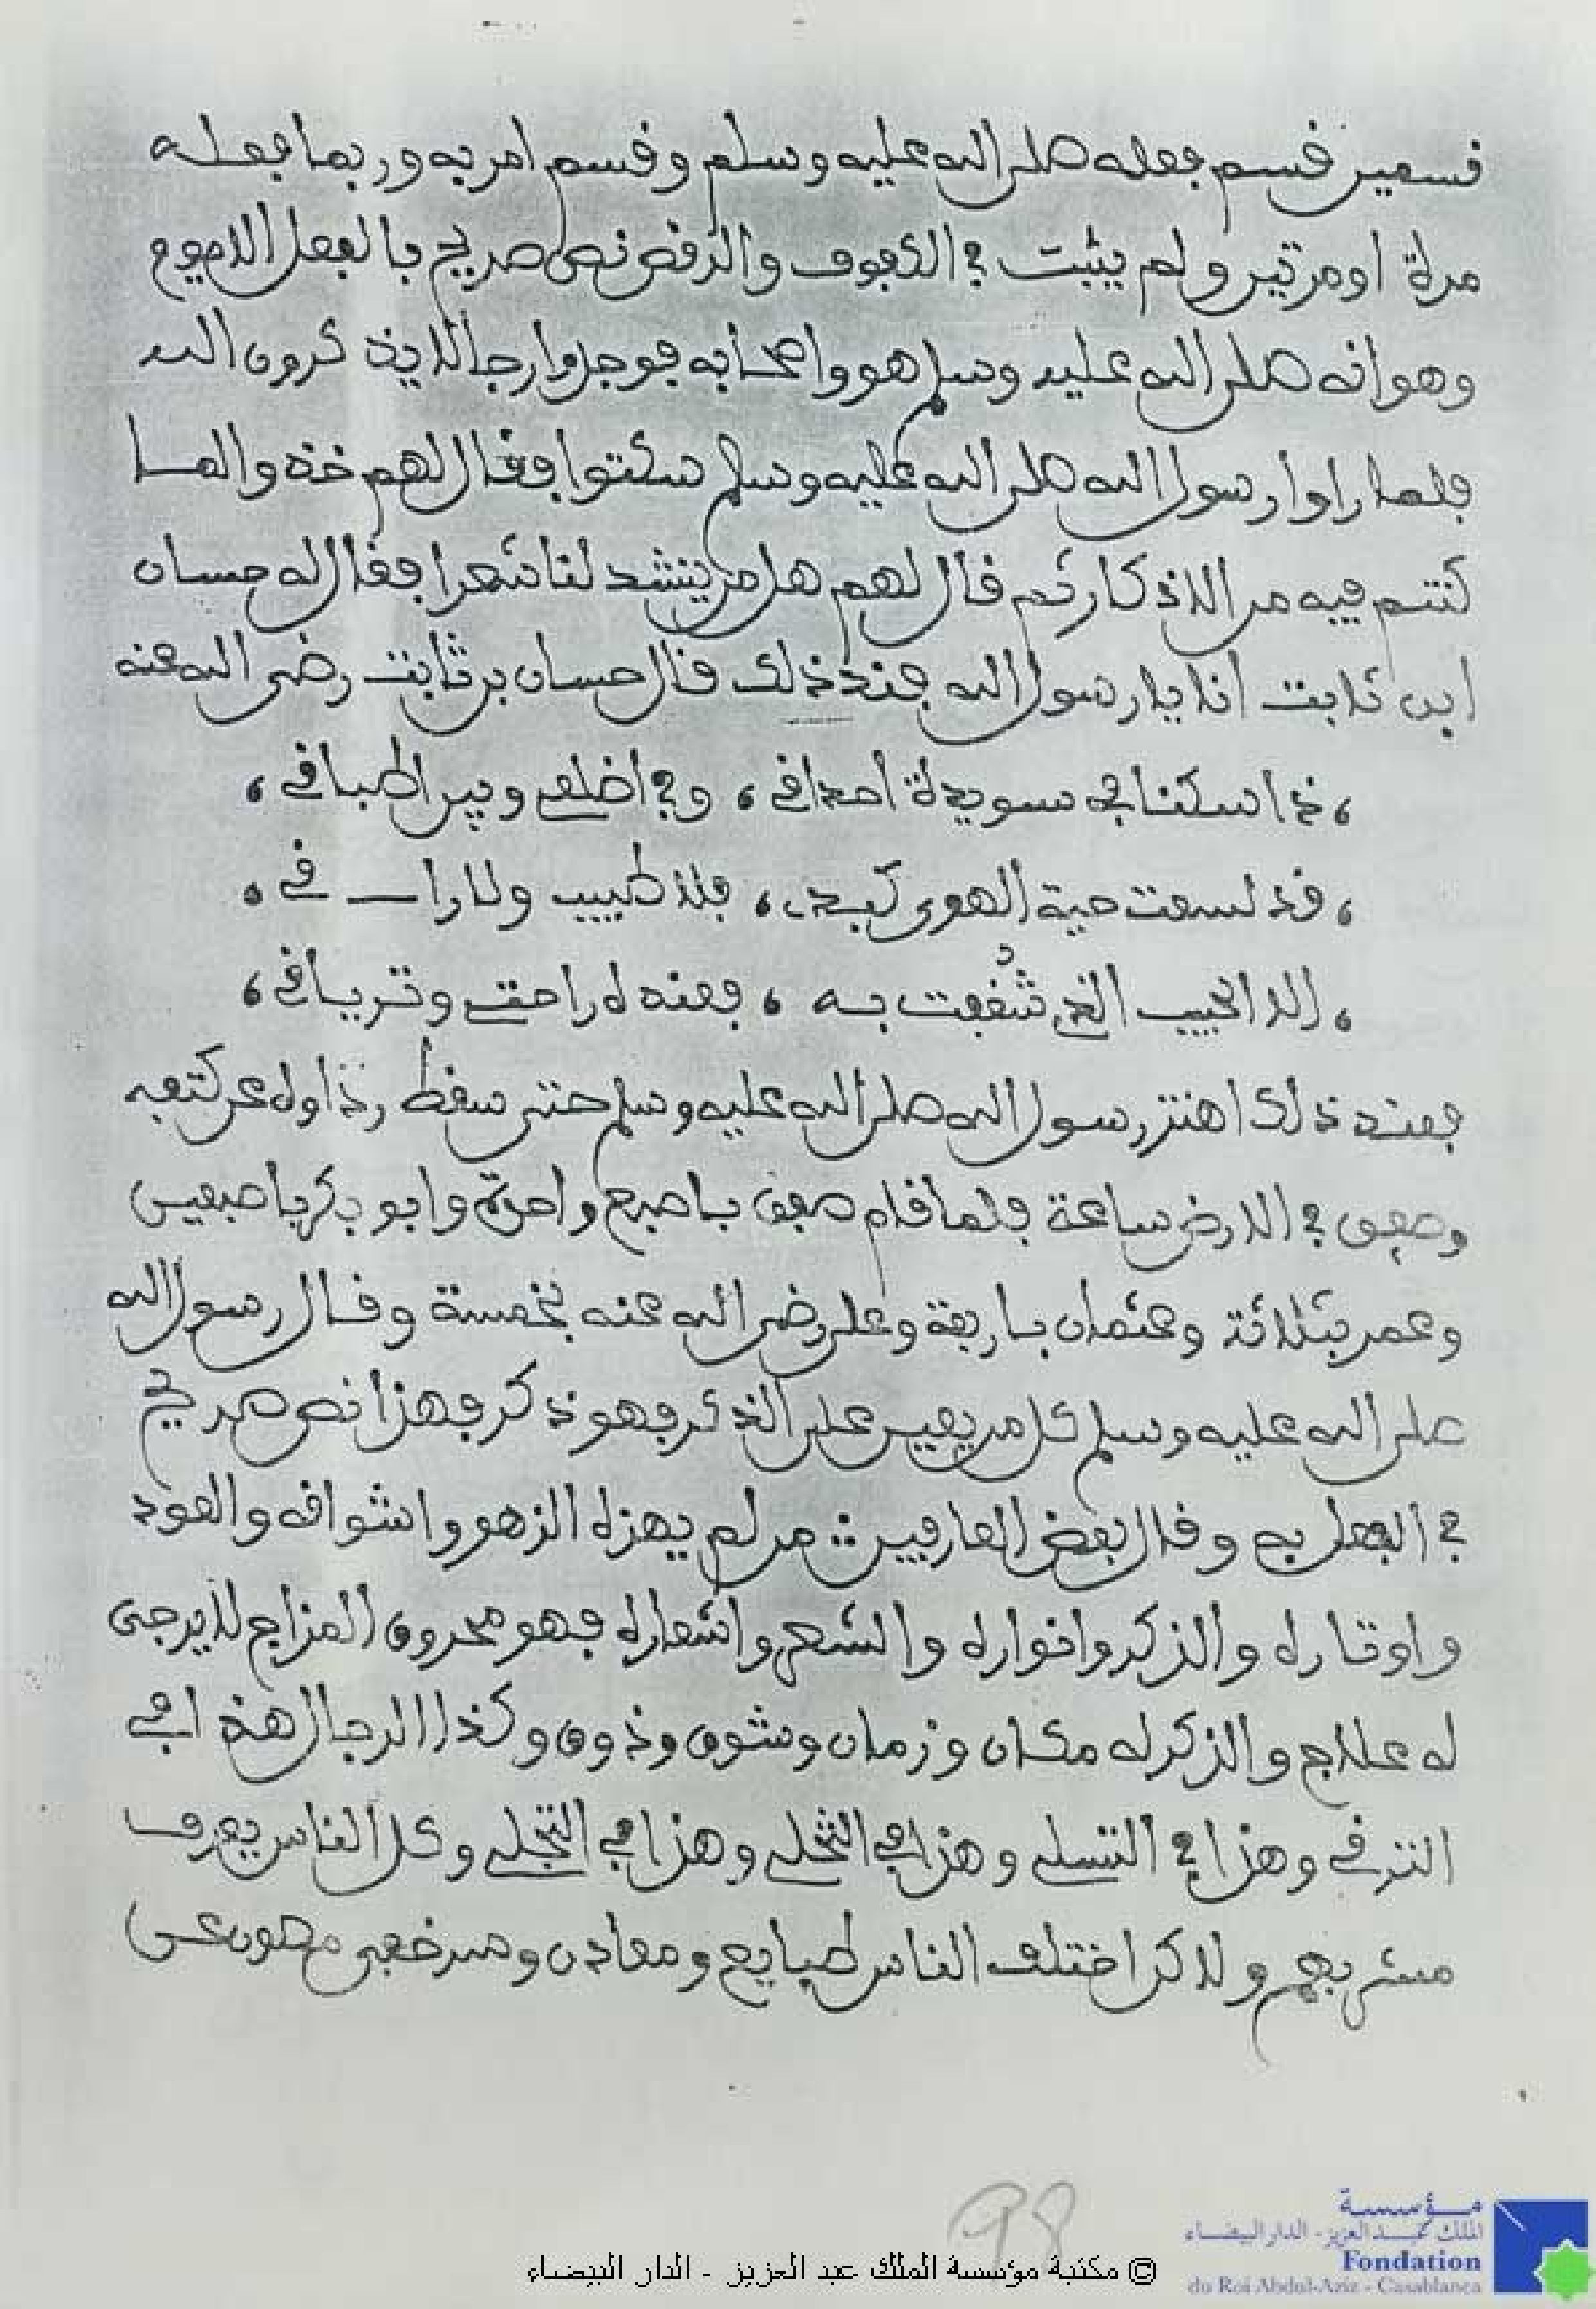 قسمين قسم فعله صلى الله عليه وسلم وقسم امر به وربما فعله
مرة او مرتين ولم يثبت في الدفوف والرقص نص صريح بالفعل الا يوم
وهو انه صلى الله عليه وسلم هو واصحابه فوجدوا رجالا يذكرون الله
فلما راوا رسول الله صلى الله عليه وسلم سكتوا فقال لهم خذوا لما
كنتم فيه من الاذكار ثم قال لهم هل من ينشد لنا شعرا فقال له حسان
ابن ثابت انا يا رسول الله فعند ذلك قال حسان بن ثابت رضي الله عنه
، في اضلعي وبين اطباقي ،
، قد لسعت حية الهوى كبدي ، فلا طبيب ولا راقي ،
، الا الحبيب الذي شغفت به ، فعنده راحتي وترياقي ،
فعند ذلك اهتز رسول الله صلى الله عليه وسلم حتى سقط رداوه عن كتفه
وصفق في الارض ساعة فلما قام صفق باصبع واحدة وابو بكر باصبعين
وعمر بثلاثة وعثمان باربعة وعلي رضي الله عنه بخمسة وقال رسول الله
صلى الله عليه وسلم كل من يعين على الذكر فهو ذكر فهذا نص صريح
في الفعل به وقال بعض العارفين : من لم يهزه الزهو واشواقه والعود
واوتاره والذكر وانواره والشعر واشعاره فهو محروق المزاج لا يرجى
له علاج والذكر له مكان وزمان وشوق وذوق وكذا الرجال هذا في
الترقي وهذا في التسلي وهذا في التخلي وهذا في التجلي وكل الناس يعرف
مشربهم ولاكن اختلف الناس طبايع ومعادن
98
© مكتبة مؤسسة الملك عبد العزيز - الدار البيضاء
مؤسسة
الملك عبد العزيز - الدار البيضاء
Fondation
du Roi Abdul-Aziz - Casablanca